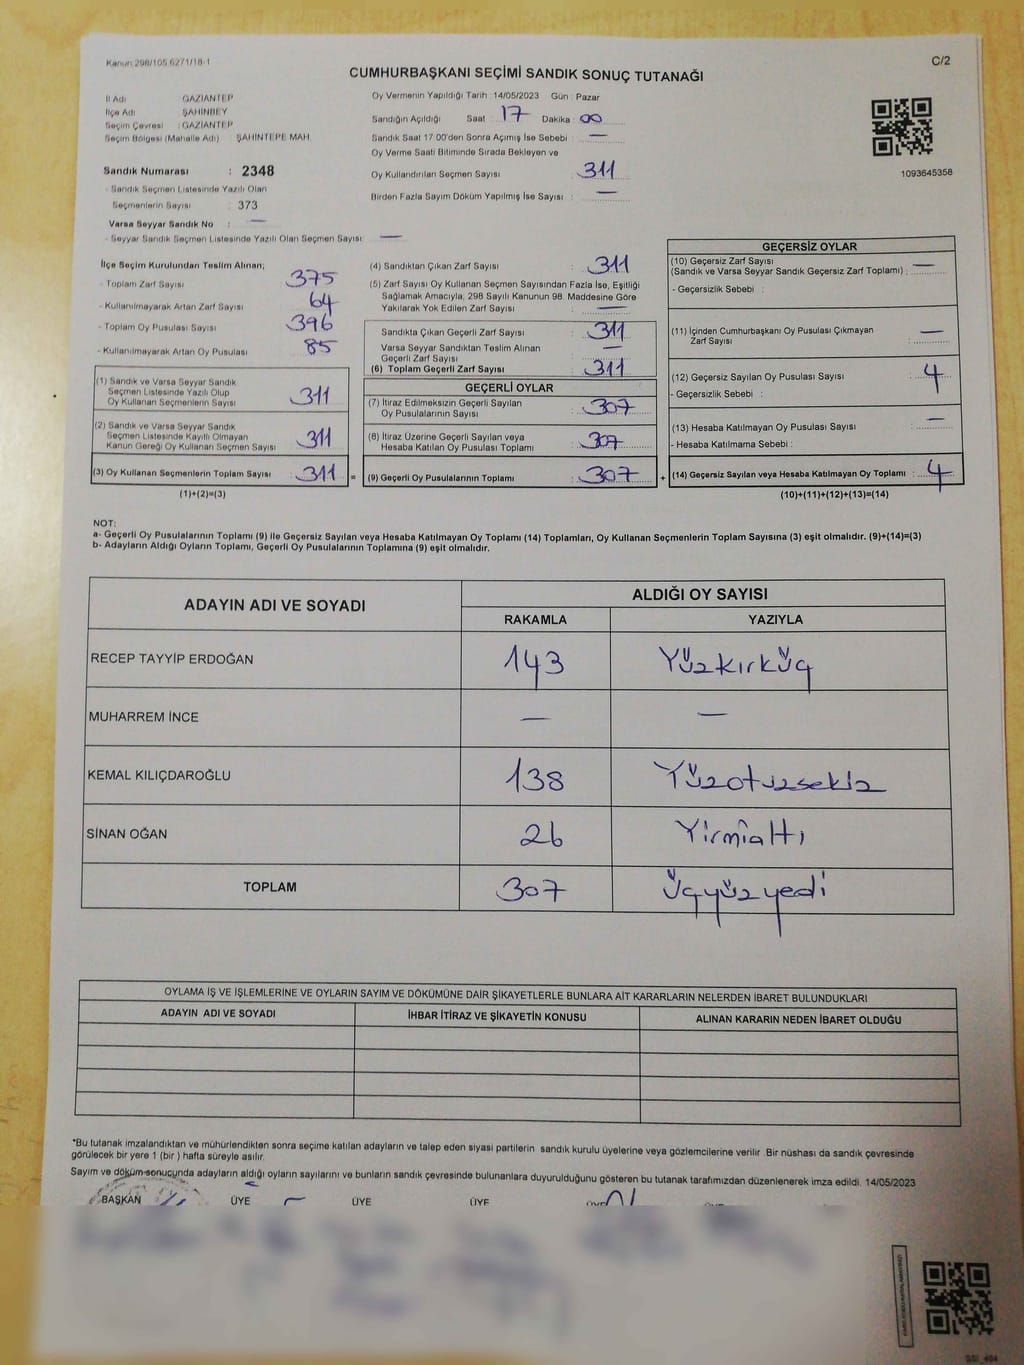 Kanun 298/105 6271/18-1
C/2
CUMHURBAŞKANI SEÇİMİ SANDIK SONUÇ TUTANAĞI
İl Adı GAZİANTEP
İlçe Adı ŞAHİNBEY
Seçim Çevresi : GAZİANTEP
Seçim Bölgesi (Mahalle Adı) ŞAHİNTEPE MAH.
Oy Vermenin Yapıldığı Tarih 14/05/2023 Gün : Pazar
Sandığın Açıldığı Saat 17 Dakika 00
Sandık Saat 17.00'den Sonra Açımış İse Sebebi : —
Oy Verme Saati Bitiminde Sırada Bekleyen ve
Oy Kullandırılan Seçmen Sayısı : 311
Birden Fazla Sayım Döküm Yapılmış İse Sayısı : —
1093645358
Sandık Numarası : 2348
- Sandık Seçmen Listesinde Yazılı Olan
Seçmenlerin Sayısı : 373
Varsa Seyyar Sandık No : —
- Seyyar Sandık Seçmen Listesinde Yazılı Olan Seçmen Sayısı: —
İlçe Seçim Kurulundan Teslim Alınan;
- Toplam Zarf Sayısı 375
- Kullanılmayarak Artan Zarf Sayısı 64
- Toplam Oy Pusulası Sayısı 396
- Kullanılmayarak Artan Oy Pusulası 85
(1) Sandık ve Varsa Seyyar Sandık
Seçmen Listesinde Yazılı Olup
Oy Kullanan Seçmenlerin Sayısı : 311
(2) Sandık ve Varsa Seyyar Sandık
Seçmen Listesinde Kayıtlı Olmayan
Kanun Gereği Oy Kullanan Seçmen Sayısı : 311
(3) Oy Kullanan Seçmenlerin Toplam Sayısı : 311 =
(1)+(2)=(3)
(4) Sandıktan Çıkan Zarf Sayısı : 311
(5) Zarf Sayısı Oy Kullanan Seçmen Sayısından Fazla İse, Eşitliği
Sağlamak Amacıyla, 298 Sayılı Kanunun 98. Maddesine Göre
Yakılarak Yok Edilen Zarf Sayısı : —
Sandıkta Çıkan Geçerli Zarf Sayısı : 311
Varsa Seyyar Sandıktan Teslim Alınan
Geçerli Zarf Sayısı : —
(6) Toplam Geçerli Zarf Sayısı : 311
GEÇERLİ OYLAR
(7) İtiraz Edilmeksizin Geçerli Sayılan
Oy Pusulalarının Sayısı : 307
(8) İtiraz Üzerine Geçerli Sayılan veya
Hesaba Katılan Oy Pusulası Toplamı : 307
(9) Geçerli Oy Pusulalarının Toplamı : 307 +
GEÇERSİZ OYLAR
(10) Geçersiz Zarf Sayısı
(Sandık ve Varsa Seyyar Sandık Geçersiz Zarf Toplamı) : —
- Geçersizlik Sebebi :
(11) İçinden Cumhurbaşkanı Oy Pusulası Çıkmayan
Zarf Sayısı : —
(12) Geçersiz Sayılan Oy Pusulası Sayısı : 4
- Geçersizlik Sebebi :
(13) Hesaba Katılmayan Oy Pusulası Sayısı : —
- Hesaba Katılmama Sebebi :
(14) Geçersiz Sayılan veya Hesaba Katılmayan Oy Toplamı : 4
(10)+(11)+(12)+(13)=(14)
NOT:
a- Geçerli Oy Pusulalarının Toplamı (9) ile Geçersiz Sayılan veya Hesaba Katılmayan Oy Toplamı (14) Toplamları, Oy Kullanan Seçmenlerin Toplam Sayısına (3) eşit olmalıdır. (9)+(14)=(3)
b- Adayların Aldığı Oyların Toplamı, Geçerli Oy Pusulalarının Toplamına (9) eşit olmalıdır.
ADAYIN ADI VE SOYADI
ALDIĞI OY SAYISI
RAKAMLA YAZIYLA
RECEP TAYYİP ERDOĞAN 143 Yüzkırküç
MUHARREM İNCE — —
KEMAL KILIÇDAROĞLU 138 Yüzotuzsekiz
SİNAN OĞAN 26 Yirmialtı
TOPLAM 307 Üçyüzyedi
OYLAMA İŞ VE İŞLEMLERİNE VE OYLARIN SAYIM VE DÖKÜMÜNE DAİR ŞİKAYETLERLE BUNLARA AİT KARARLARIN NELERDEN İBARET BULUNDUKLARI
ADAYIN ADI VE SOYADI İHBAR İTİRAZ VE ŞİKAYETİN KONUSU ALINAN KARARIN NEDEN İBARET OLDUĞU
*Bu tutanak imzalandıktan ve mühürlendikten sonra seçime katılan adayların ve talep eden siyasi partilerin sandık kurulu üyelerine veya gözlemcilerine verilir. Bir nüshası da sandık çevresinde
görülecek bir yere 1 (bir) hafta süreyle asılır.
Sayım ve döküm sonucunda adayların aldığı oyların sayılarını ve bunların sandık çevresinde bulunanlara duyurulduğunu gösteren bu tutanak tarafımızdan düzenlenerek imza edildi. 14/05/2023
BAŞKAN ÜYE ÜYE ÜYE